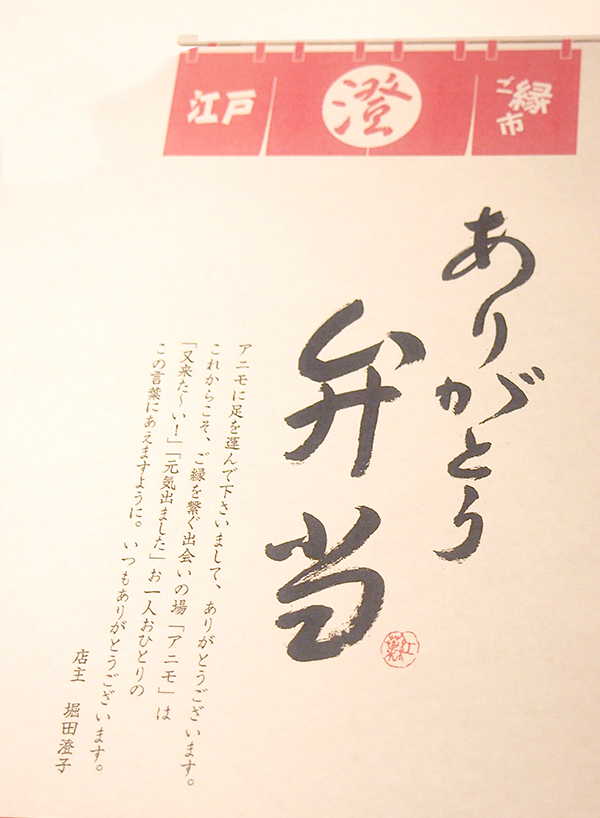 江戸
澄
ご縁市
ありがとう
弁当
アニモに足を運んで下さいまして、ありがとうございます。
これからこそ、ご縁を繋ぐ出会いの場「アニモ」は
「又来た〜い!」「元気出ました」お一人おひとりの
この言葉にあえますように。いつもありがとうございます。
店主 堀田澄子